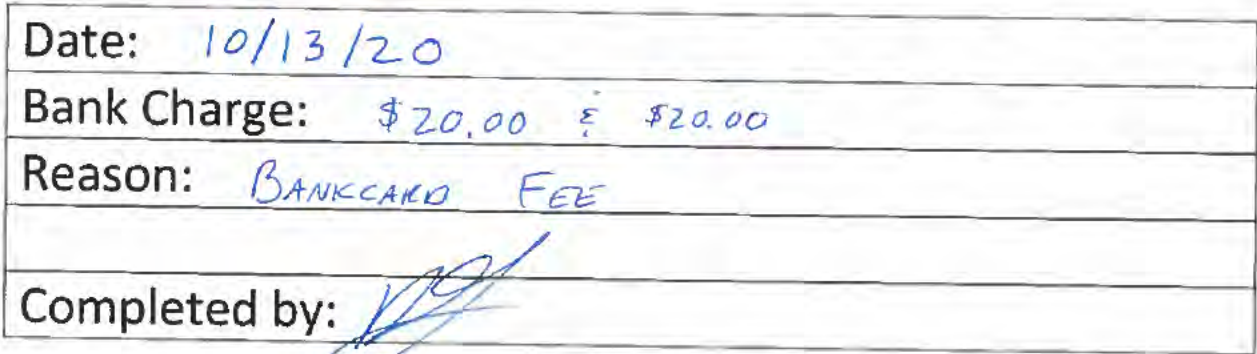 Date: 10/13/20
Bank Charge: $20.00 & $20.00
Reason: BANKCARD FEE
Completed by: